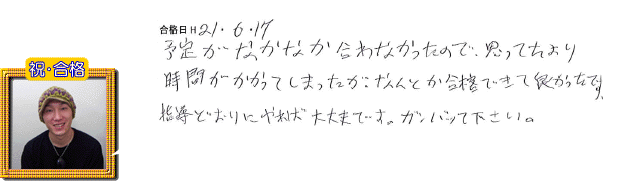 合格日 H21.6.17
予定がなかなか合わなかったので、思ってたより
祝・合格
時間がかかってしまったが、なんとか合格できて良かったです。
指導どおりにやれば大丈夫です。ガンバって下さい。